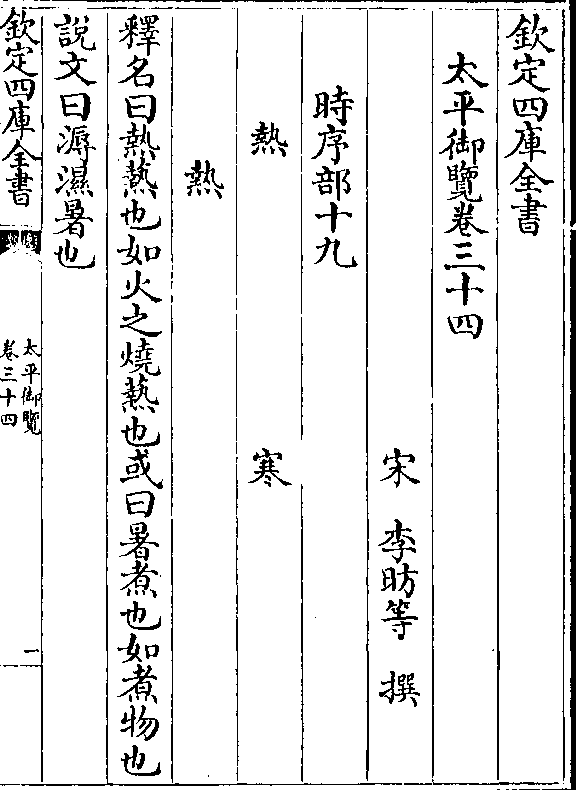 欽定四庫全書
太平御覽卷三十四
宋 李昉等 撰
時序部十九
熱 寒
熱
釋名曰熱爇也如火之燒爇也或曰暑煮也如煮物也
說文曰溽濕暑也
欽定四庫全書
太平御覽
卷三十四
一